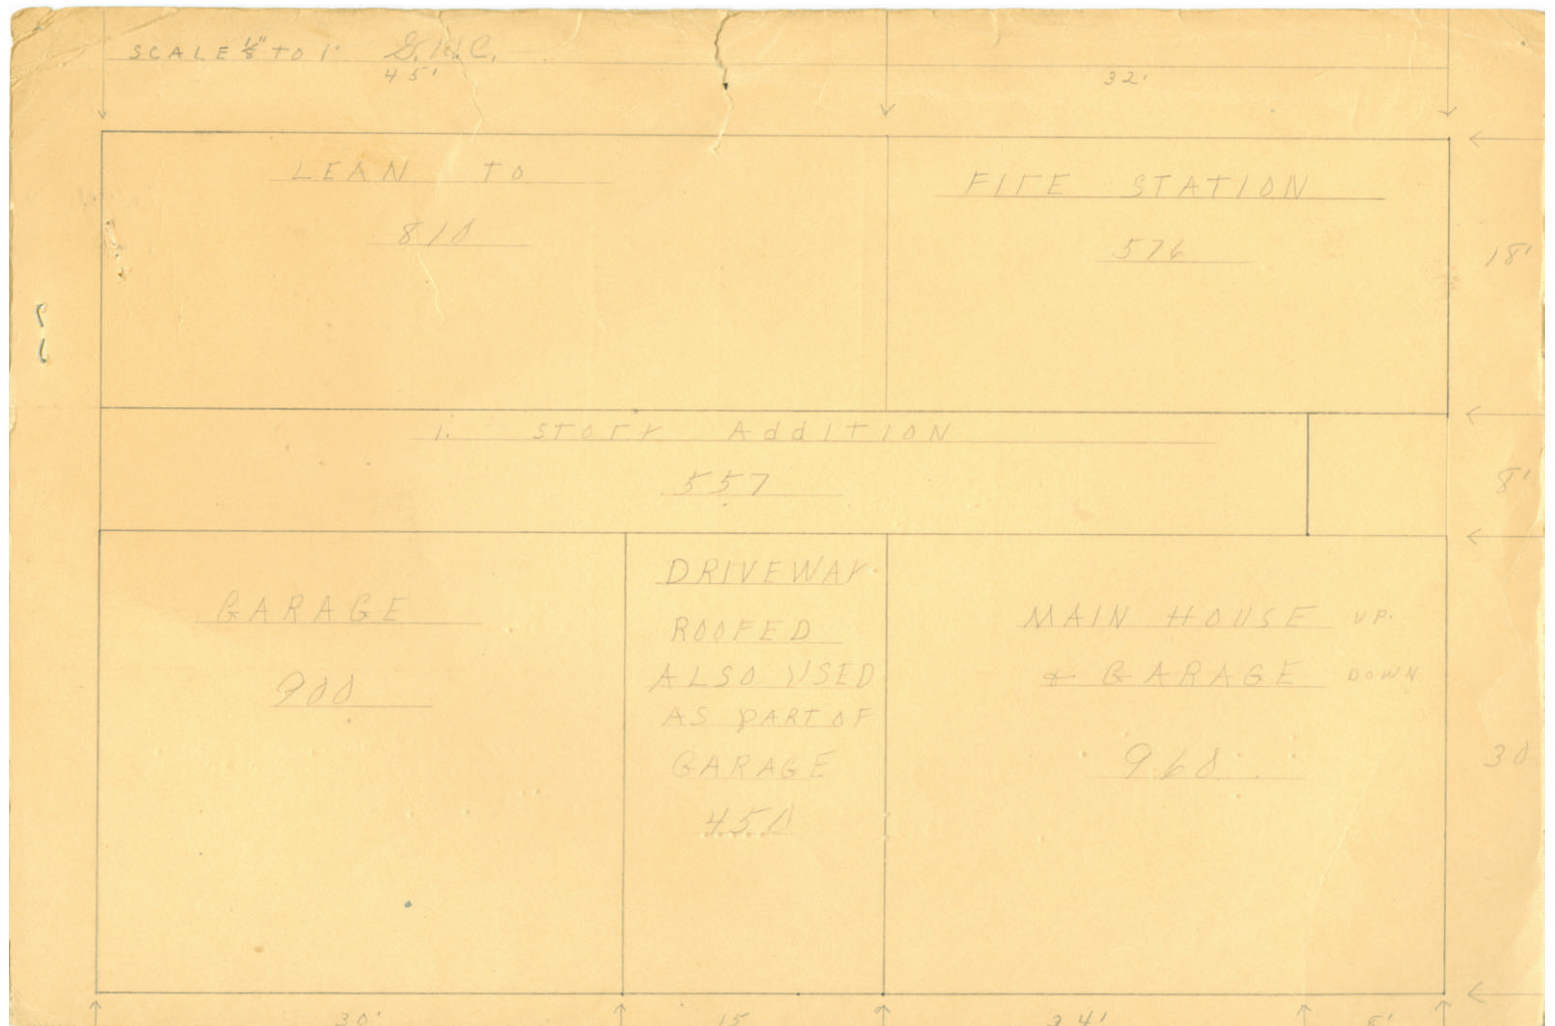 SCALE ⅛" TO 1' G.W.C.
45'
32'
LEAN TO
810
FIRE STATION
576
18'
1. STORY AddITION
557
8'
GARAGE
900
DRIVEWAY
ROOFED
ALSO USED
AS PART OF
GARAGE
450
MAIN HOUSE UP.
& GARAGE DOWN
960
30
30'
15
24'
8'